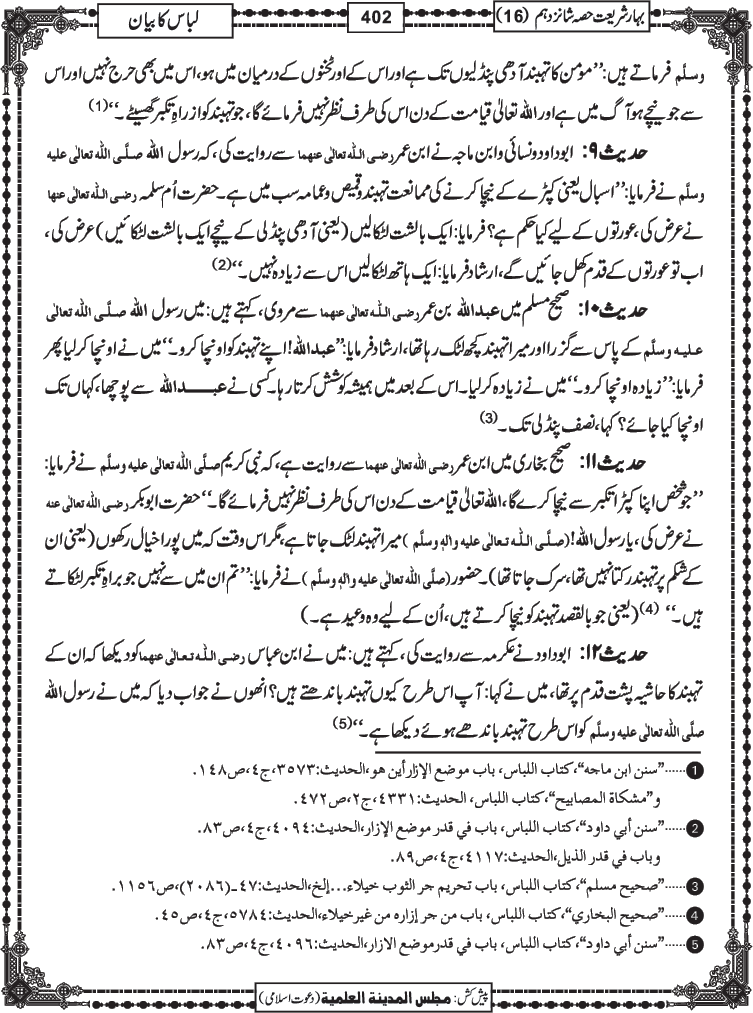 بہارِ شریعت حصہ شانزدہم (16)
402
لباس کا بیان
وسلَّم فرماتے ہیں: ’’مؤمن کا تہبند آدھی پنڈلیوں تک ہے اور اس کے اور ٹخنوں کے درمیان میں ہو، اس میں بھی حرج نہیں اور اس
سے جو نیچے ہو آگ میں ہے اور اللہ تعالیٰ قیامت کے دن اس کی طرف نظر نہیں فرمائے گا، جو تہبند کو ازراہِ تکبر گھسیٹے۔‘‘(1)
حدیث ۹: ابوداود و نسائی و ابن ماجہ نے ابن عمر رضی اللہ تعالٰی عنھما سے روایت کی، کہ رسول اللہ صلَّی اللہ تعالٰی علیہ
وسلَّم نے فرمایا: ’’اسبال یعنی کپڑے کے نیچا کرنے کی ممانعت تہبند و قمیص و عمامہ سب میں ہے۔ حضرت اُم سلمہ رضی اللہ تعالٰی عنھا
نے عرض کی، عورتوں کے لیے کیا حکم ہے؟ فرمایا: ایک بالشت لٹکالیں (یعنی آدھی پنڈلی کے نیچے ایک بالشت لٹکائیں) عرض کی،
اب تو عورتوں کے قدم کھل جائیں گے، ارشاد فرمایا: ایک ہاتھ لٹکالیں اس سے زیادہ نہیں۔‘‘(2)
حدیث ۱۰: صحیح مسلم میں عبداللہ بن عمر رضی اللہ تعالٰی عنھما سے مروی، کہتے ہیں: میں رسول اللہ صلَّی اللہ تعالٰی
علیہ وسلَّم کے پاس سے گزرا اور میرا تہبند کچھ لٹک رہا تھا، ارشاد فرمایا: ’’عبداللہ! اپنے تہبند کو اونچا کرو۔‘‘ میں نے اونچا کرلیا پھر
فرمایا: ’’زیادہ اونچا کرو۔‘‘ میں نے زیادہ کرلیا۔ اس کے بعد میں ہمیشہ کوشش کرتا رہا۔ کسی نے عبداللہ سے پوچھا، کہاں تک
اونچا کیا جائے؟ کہا، نصف پنڈلی تک۔(3)
حدیث ۱۱: صحیح بخاری میں ابن عمر رضی اللہ تعالٰی عنھما سے روایت ہے، کہ نبی کریم صلَّی اللہ تعالٰی علیہ وسلَّم نے فرمایا:
’’جو شخص اپنا کپڑا تکبر سے نیچا کرے گا، اللہ تعالیٰ قیامت کے دن اس کی طرف نظر نہیں فرمائے گا۔‘‘ حضرت ابوبکر رضی اللہ تعالٰی عنہ
نے عرض کی، یارسول اللہ! (صلَّی اللہ تعالٰی علیہ واٰلہٖ وسلَّم) میرا تہبند لٹک جاتا ہے، مگر اس وقت کہ میں پورا خیال رکھوں (یعنی ان
کے شکم پر تہبند رکتا نہیں تھا، سرک جاتا تھا)۔ حضور (صلَّی اللہ تعالٰی علیہ واٰلہٖ وسلَّم) نے فرمایا: ’’تم ان میں سے نہیں جو براہِ تکبر لٹکاتے
ہیں۔‘‘ (4) (یعنی جو بالقصد تہبند کو نیچا کرتے ہیں، اُن کے لیے وہ وعید ہے۔)
حدیث ۱۲: ابوداود نے عکرمہ سے روایت کی، کہتے ہیں: میں نے ابن عباس رضی اللہ تعالٰی عنھما کو دیکھا کہ ان کے
تہبند کا حاشیہ پشت قدم پر تھا، میں نے کہا: آپ اس طرح کیوں تہبند باندھتے ہیں؟ انھوں نے جواب دیا کہ میں نے رسول اللہ
صلَّی اللہ تعالٰی علیہ وسلَّم کو اس طرح تہبند باندھے ہوئے دیکھا ہے۔‘‘(5)
1 ......’’سنن ابن ماجه‘‘، کتاب اللباس، باب موضع الإزار أين هو، الحديث: ٣٥٧٣، ج٤، ص١٤٨.
و’’مشكاة المصابيح‘‘، كتاب اللباس، الحديث: ٤٣٣١، ج٢، ص٤٧٢.
2 ......’’سنن أبي داود‘‘، كتاب اللباس، باب في قدر موضع الإزار، الحديث: ٤٠٩٤، ج٤، ص٨٣.
وباب في قدر الذيل، الحديث: ٤١١٧، ج٤، ص٨٩.
3 ......’’صحيح مسلم‘‘، كتاب اللباس، باب تحريم جر الثوب خيلاء...إلخ، الحديث: ٤٧-(٢٠٨٦)، ص١١٥٦.
4 ......’’صحيح البخاري‘‘، كتاب اللباس، باب من جر إزاره من غير خيلاء، الحديث: ٥٧٨٤، ج٤، ص٤٥.
5 ......’’سنن أبي داود‘‘، كتاب اللباس، باب في قدر موضع الازار، الحديث: ٤٠٩٦، ج٤، ص٨٣.
پیش کش: مجلس المدينة العلمية (دعوت اسلامی)